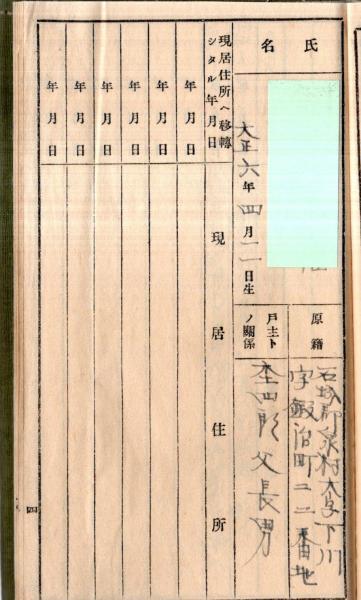 氏名
大正六年四月二一日生
原籍
石城郡泉村大字下川
字鍛治町二二番地
戸主トノ關係
父長男
現居住所ヘ移轉シタル年月日
現居住所
年月日
年月日
年月日
年月日
年月日
年月日
四